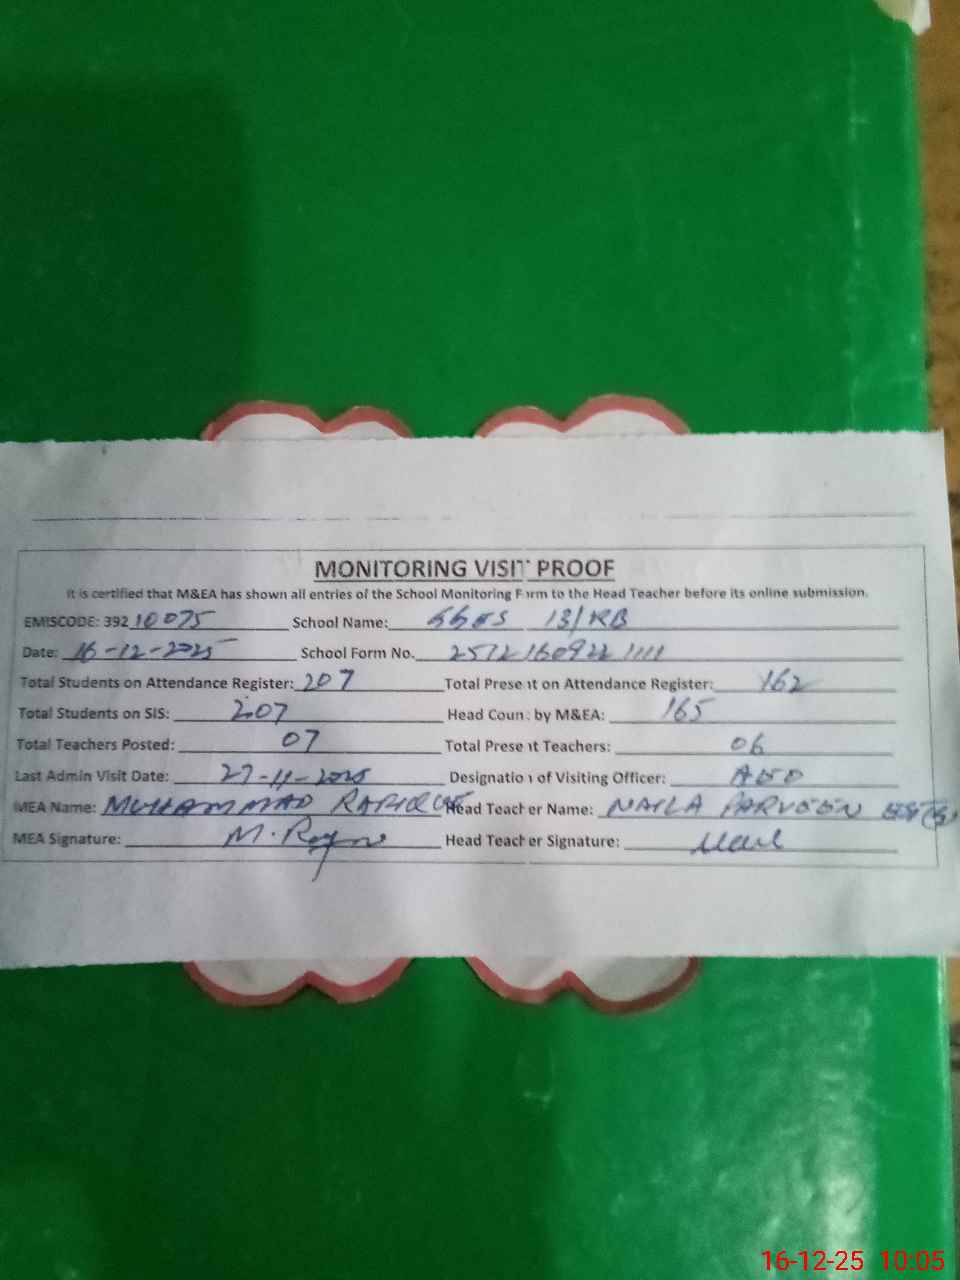 MONITORING VISIT PROOF
It is certified that M&EA has shown all entries of the School Monitoring Form to the Head Teacher before its online submission.
EMISCODE: 39210075 School Name: GGES 13/RB
Date: 16-12-2025 School Form No. 2512160922 1111
Total Students on Attendance Register: 207 Total Present on Attendance Register: 162
Total Students on SIS: 207 Head Count by M&EA: 165
Total Teachers Posted: 07 Total Present Teachers: 06
Last Admin Visit Date: 27-11-2025 Designation of Visiting Officer: AEO
MEA Name: MUHAMMAD RAFIQUE Head Teacher Name: NAILA PARVEEN
MEA Signature: Head Teacher Signature:
16-12-25 10:05